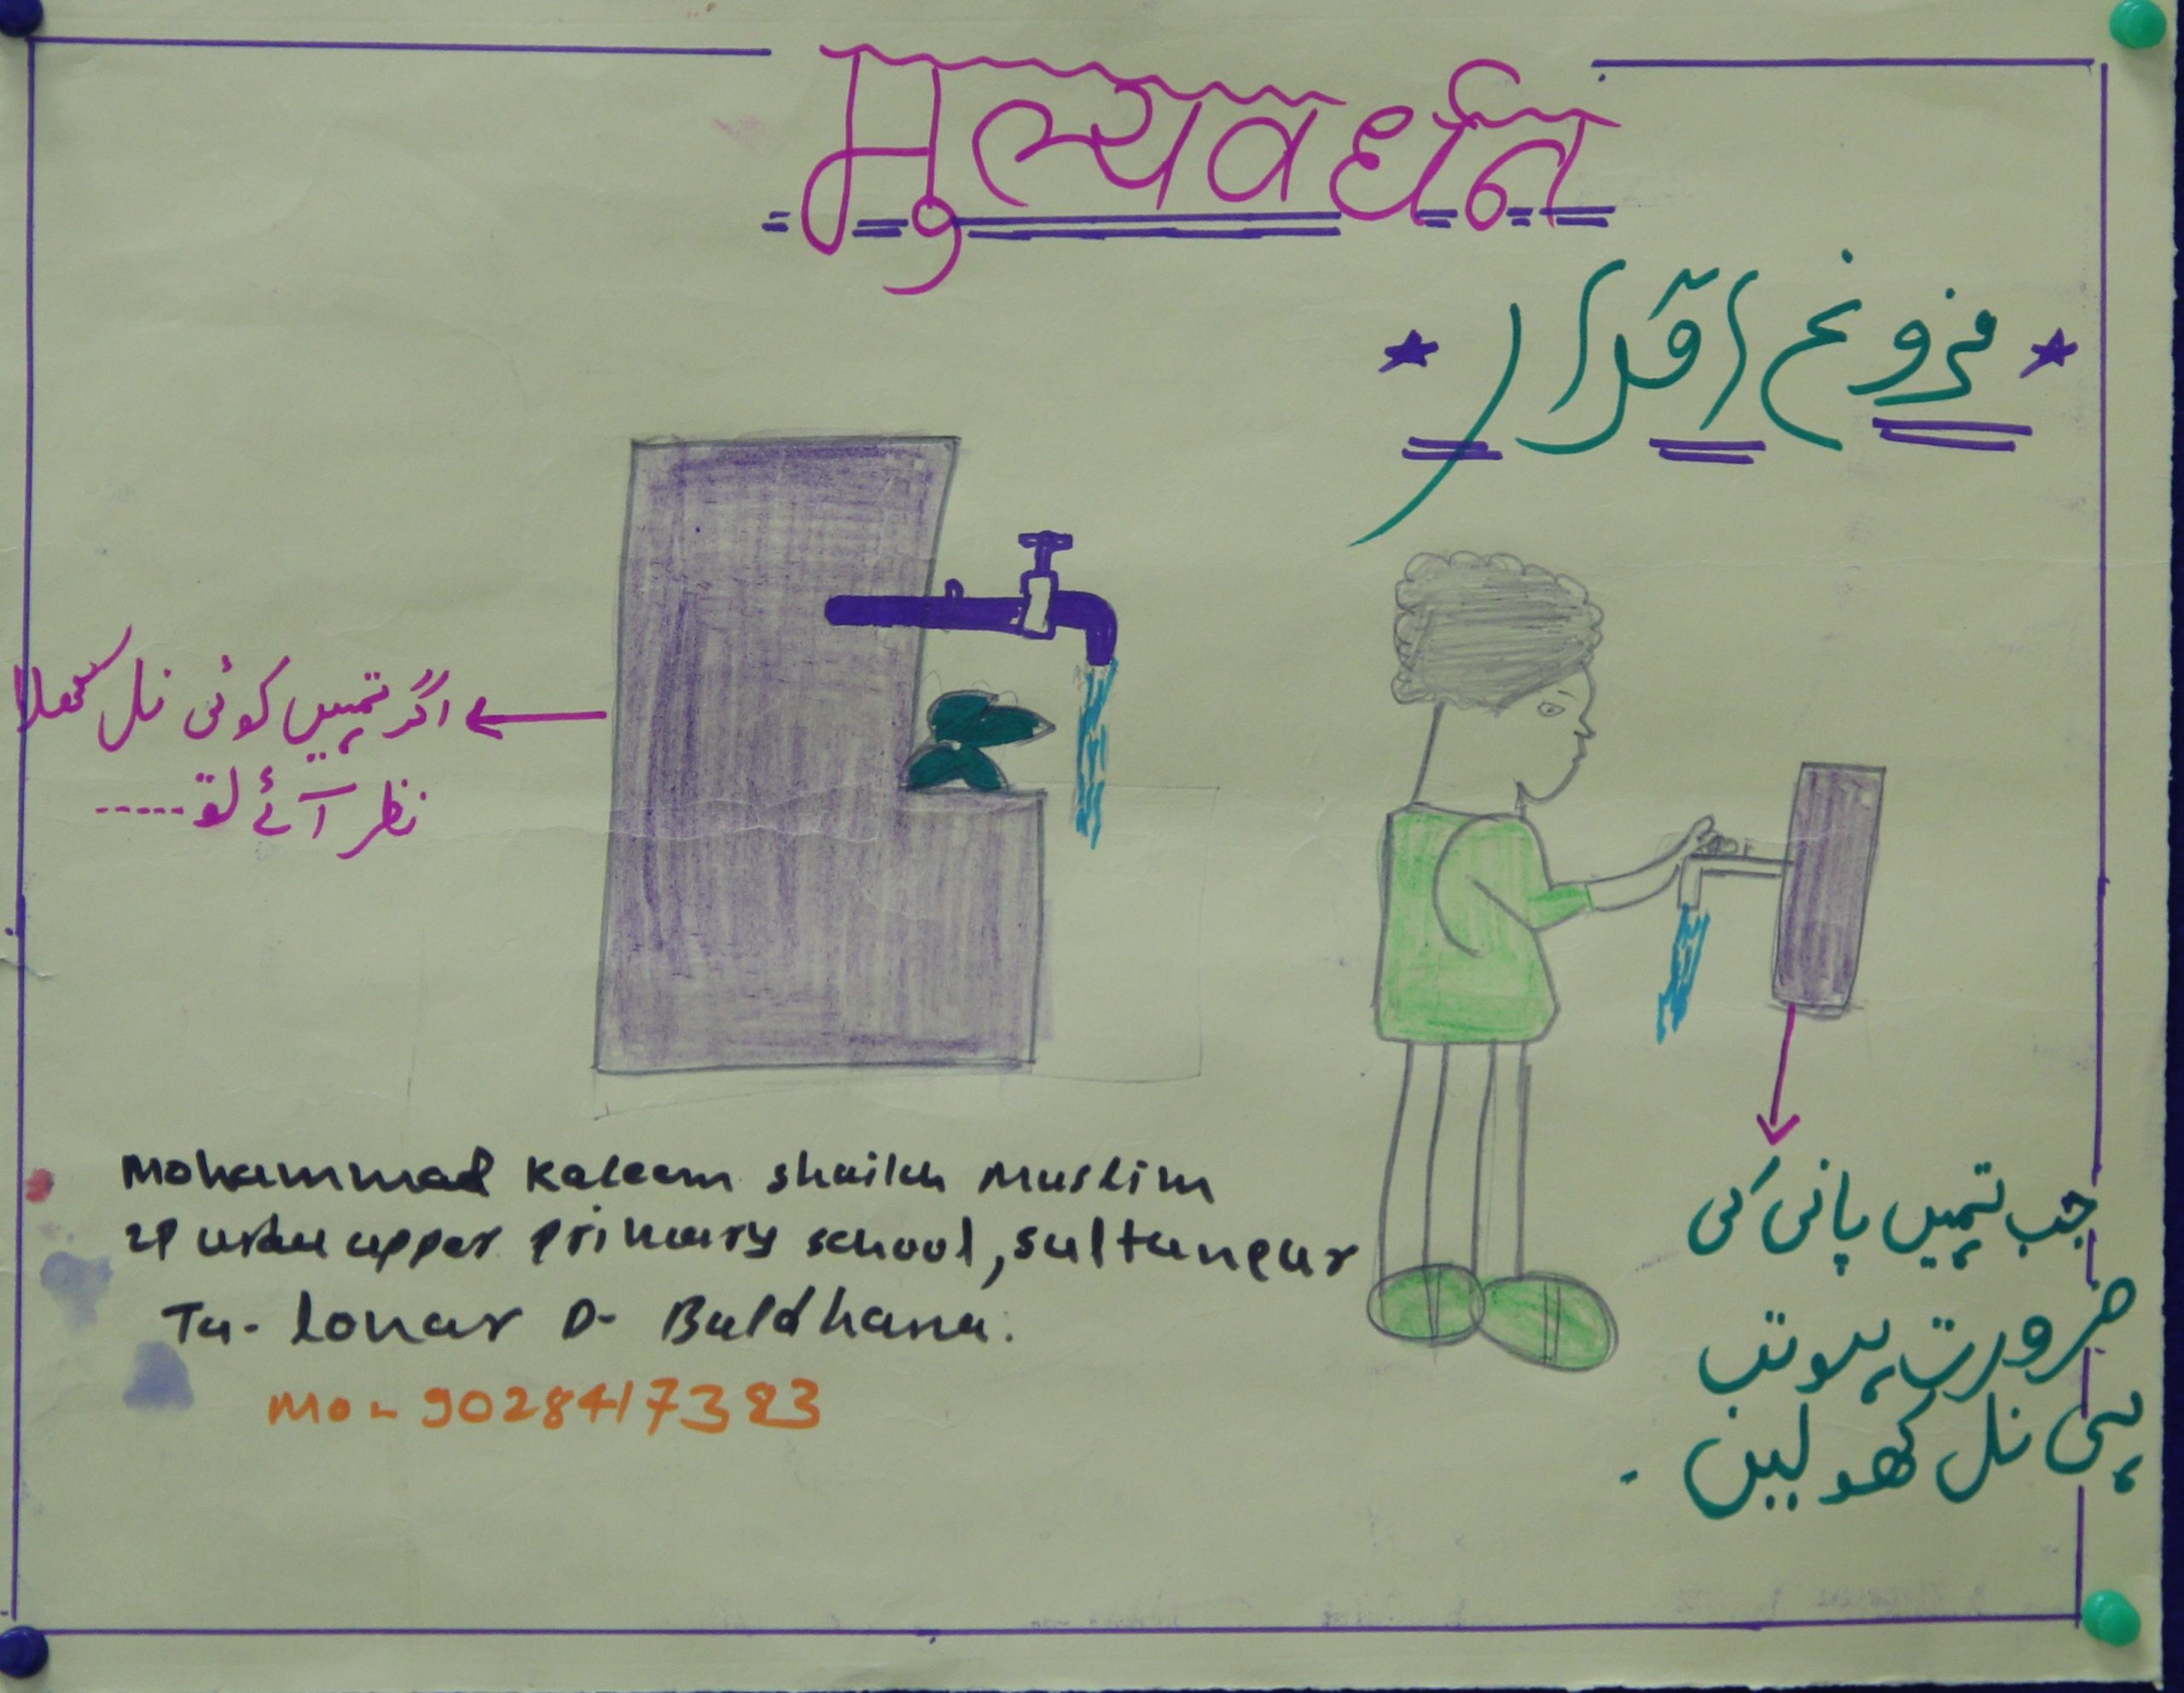 मुल्यवर्धन
فروغ اقدار
اگر تمہیں کوئی نل کھلا
نظر آئے تو-----
جب تمہیں پانی کی
ضرورت ہو تب
ہی نل کھولیں .
Mohammad Kaleem shaikh Muslim
ZP urdu upper primary school, sultanpur
Ta- lonar D- Buldhana.
Mo - 9028417383